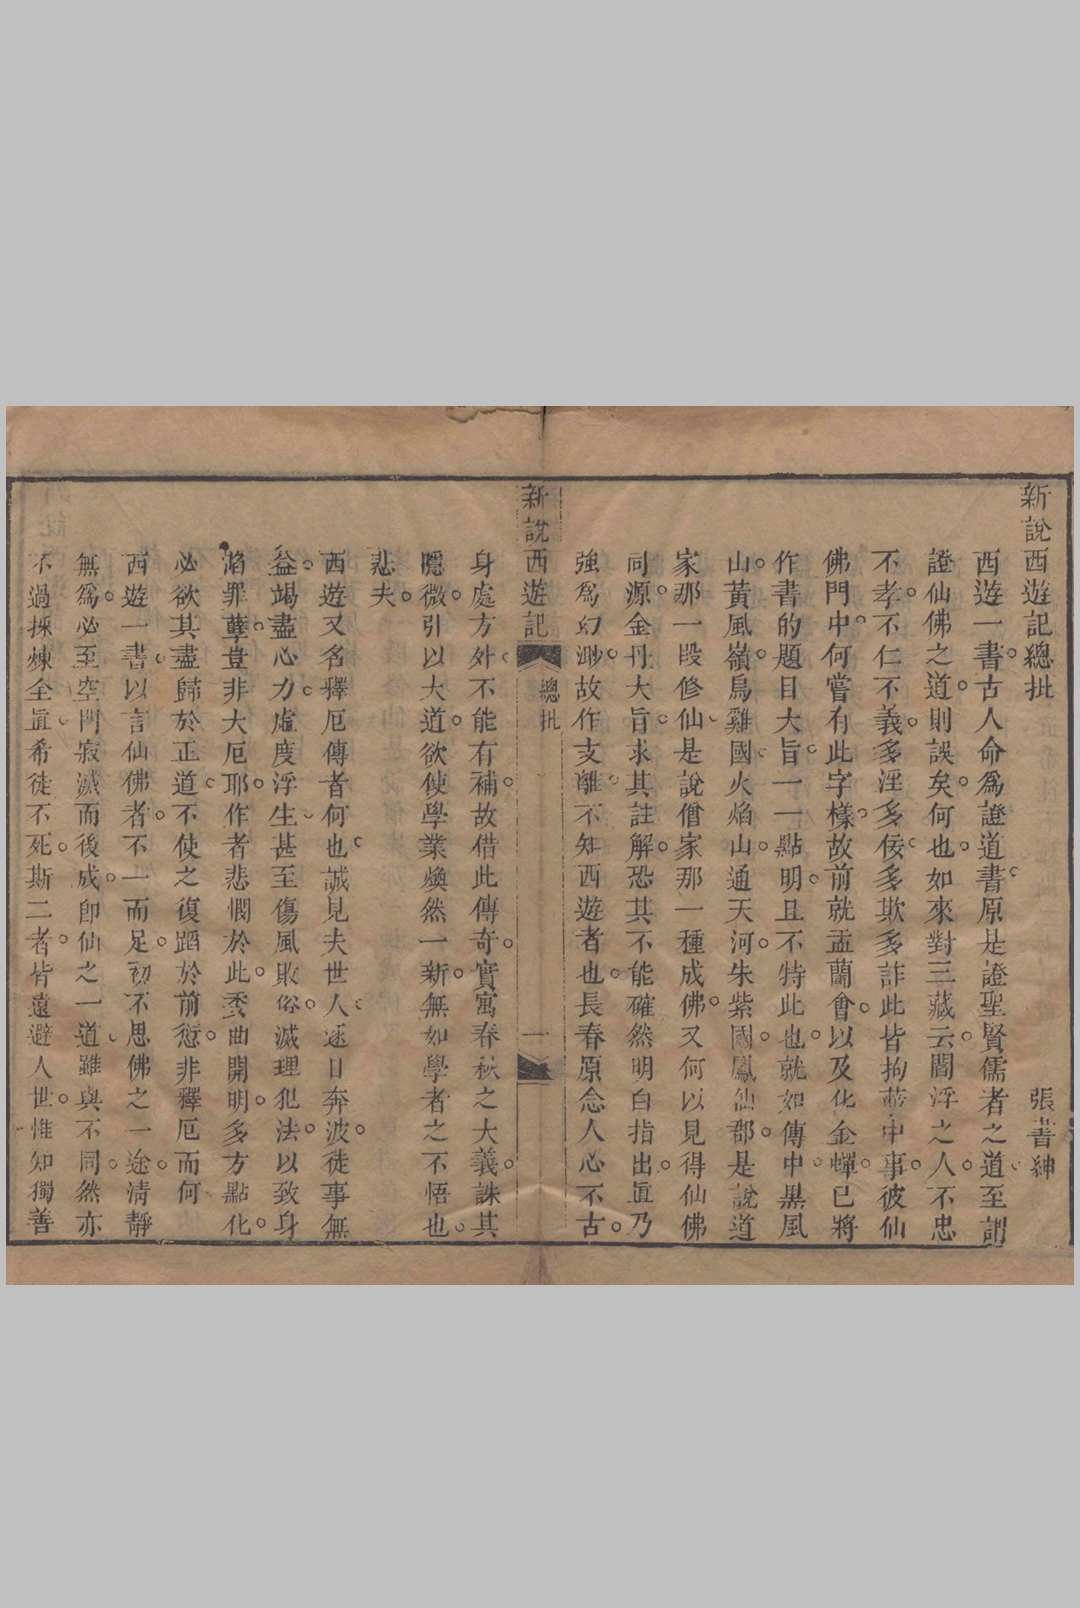 新說西遊記總批
張書紳
西遊一書。古人命為證道書。原是證聖賢儒者之道。至謂
證仙佛之道。則誤矣。何也。如來對三藏云。閻浮之人。不忠
不孝。不仁不義。多淫多佞。多欺多詐。此皆拘蔽中事。彼仙
佛門中。何嘗有此字樣。故前就盂蘭會。以及化金蟬。已將
作書的題目大旨。一一點明。且不特此也。就如傳中黑風
山。黃風嶺。烏雞國。火焰山。通天河。朱紫國。鳳仙郡。是說道
家那一段修仙。是說僧家那一種成佛。又何以見得仙佛
同源。金丹大旨。求其註解。恐其不能確然明白指出。眞乃
強為幻渺。故作支離。不知西遊者也。長春原念人心不古。
新說西遊記
總批
一
身處方外。不能有補。故借此傳奇。實寓春秋之大義。誅其
隱微。引以大道。欲使學業煥然一新。無如學者之不悟也。
悲夫。
西遊又名釋厄傳者何也。誠見夫世人。逐日奔波。徒事無
益。竭盡心力。虛度浮生。甚至傷風敗俗。滅理犯法。以致身
陷罪孽。豈非大厄耶。作者悲憫於此。委曲開明。多方點化。
必欲其盡歸於正道。不使之復蹈於前愆。非釋厄而何
西遊一書。以言仙佛者。不一而足。初不思佛之一途。清靜
無為。必至空門寂滅而後成。即仙之一道。雖與不同。然亦
不過採煉全眞。希徒不死。斯二者。皆遠避人世。惟知獨善